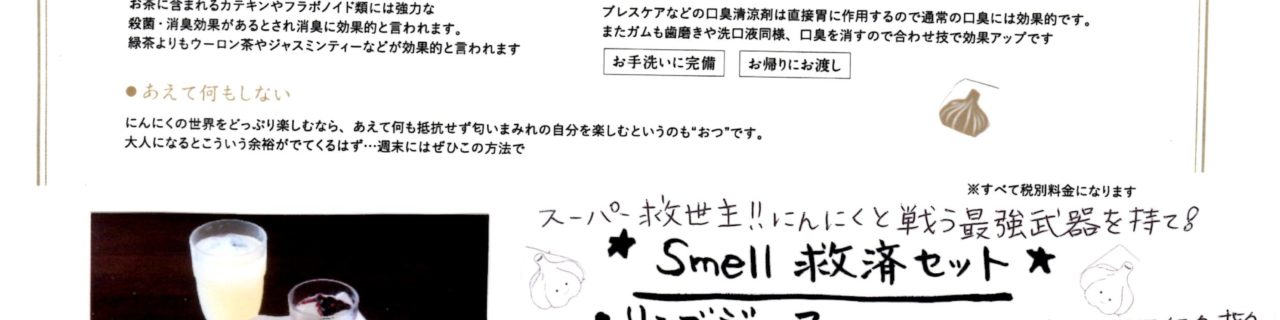 お茶に含まれるカテキンやフラボノイド類には強力な
殺菌・消臭効果があるとされ消臭に効果的と言われます。
緑茶よりもウーロン茶やジャスミンティーなどが効果的と言われます
ブレスケアなどの口臭清涼剤は直接胃に作用するので通常の口臭には効果的です。
またガムも歯磨きや洗口液同様、口臭を消すので合わせ技で効果アップです
お手洗いに完備
お帰りにお渡し
●あえて何もしない
にんにくの世界をどっぷり楽しむなら、あえて何も抵抗せず匂いまみれの自分を楽しむというのも“おつ”です。
大人になるとこういう余裕がでてくるはず…週末にはぜひこの方法で
※すべて税別料金になります
スーパー救世主!!にんにくと戦う最強武器を持て!
★ Smell 救済セット ★